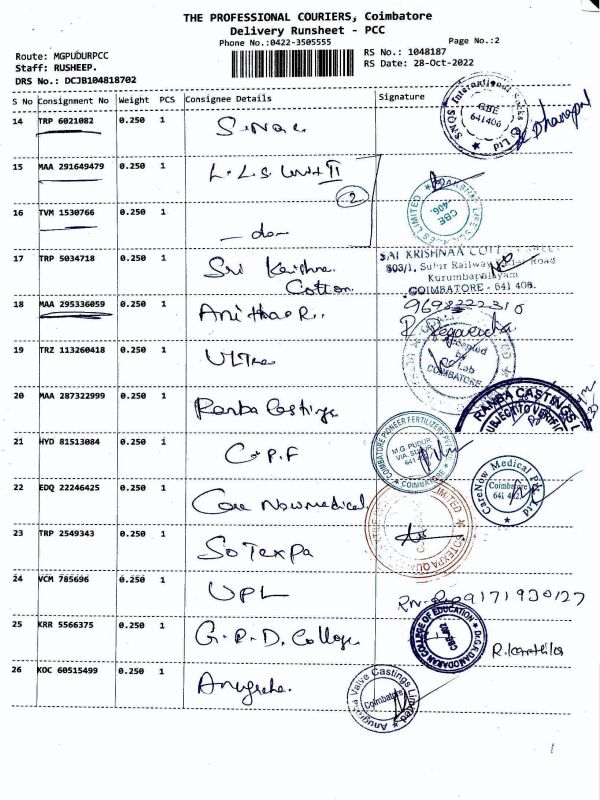 THE PROFESSIONAL COURIERS, Coimbatore
Delivery Runsheet - PCC
Phone No.:0422-3505555
Page No.:2
Route: MGPUDURPCC
Staff: RUSHEEP.
DRS No.: DCJB104818702
RS No.: 1048187
RS Date: 28-Oct-2022
S No Consignment No Weight PCS Consignee Details Signature
14 TRP 6021082 0.250 1
641406
Dhanapal
15 MAA 291649479 0.250 1 L.L.S Unit II
2
16 TVM 1530766 0.250 1 - do -
17 TRP 5034718 0.250 1 Sri Krishna
Cotton
SAI KRISHNAA
Kurumbapalayam
COIMBATORE - 641 406.
18 MAA 295336059 0.250 1 Anitha R.
19 TRZ 113260418 0.250 1 Ultra
COIMBATORE
20 MAA 287322999 0.250 1 Ranba Castings
RANBA CASTINGS
SUBJECT TO VERIFI
21 HYD 81513084 0.250 1 C.P.F
COIMBATORE PIONEER FERTILIZERS
M.G. PUDUR
VIA. SULUR
COIMBATORE
22 EDQ 22246425 0.250 1 Care Nowmedical
CareNow Medical Pvt Ltd
Coimbatore
23 TRP 2549343 0.250 1 SoTexpa
24 VCM 785696 0.250 1 UPL
25 KRR 5566375 0.250 1 G.R.D. College
Dr.G.R.DAMODARAN COLLEGE OF EDUCATION
R. Karthika
26 KOC 60515499 0.250 1 Anugraha.
Anugraha Valve Castings Limited
Coimbatore
1